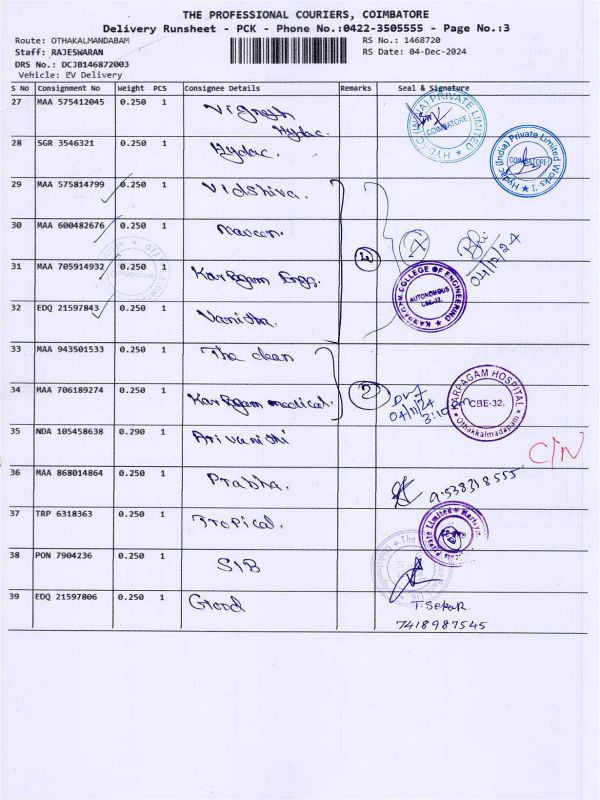 THE PROFESSIONAL COURIERS, COIMBATORE
Delivery Runsheet - PCK - Phone No.:0422-3505555 - Page No.:3
Route: OTHAKALMANDABAM RS No.: 1468720
Staff: RAJESWARAN RS Date: 04-Dec-2024
DRS No.: DCJB146872003
Vehicle: EV Delivery
S No Consignment No Weight PCS Consignee Details Remarks Seal & Signature
27 MAA 575412045 0.250 1 Vignesh
Hydac.
28 SGR 3546321 0.250 1 Hydac.
29 MAA 575814799 0.250 1 Vidshiva.
30 MAA 600482676 0.250 1 Naveen.
31 MAA 705914932 0.250 1 Karpagam Engg.
32 EDQ 21597843 0.250 1 Vanitha.
04/12/24
KARPAGAM COLLEGE OF ENGINEERING
AUTONOMOUS
CBE-32.
33 MAA 943501533 0.250 1 The dean
34 MAA 706189274 0.250 1 Karpagam medical. 2
04/11/24
KARPAGAM HOSPITAL
CBE-32.
Othakkalmadapam
35 NDA 105458638 0.290 1 Arivanithi
C/N
36 MAA 868014864 0.250 1 Prabha.
9538318555
37 TRP 6318363 0.250 1 Tropical.
38 PON 7904236 0.250 1 SIB
39 EDQ 21597806 0.250 1 Good
T. Sekar
7418987545
HYDAC (INDIA) PRIVATE LIMITED
COIMBATORE
Hydac (India) Private Limited
COIMBATORE